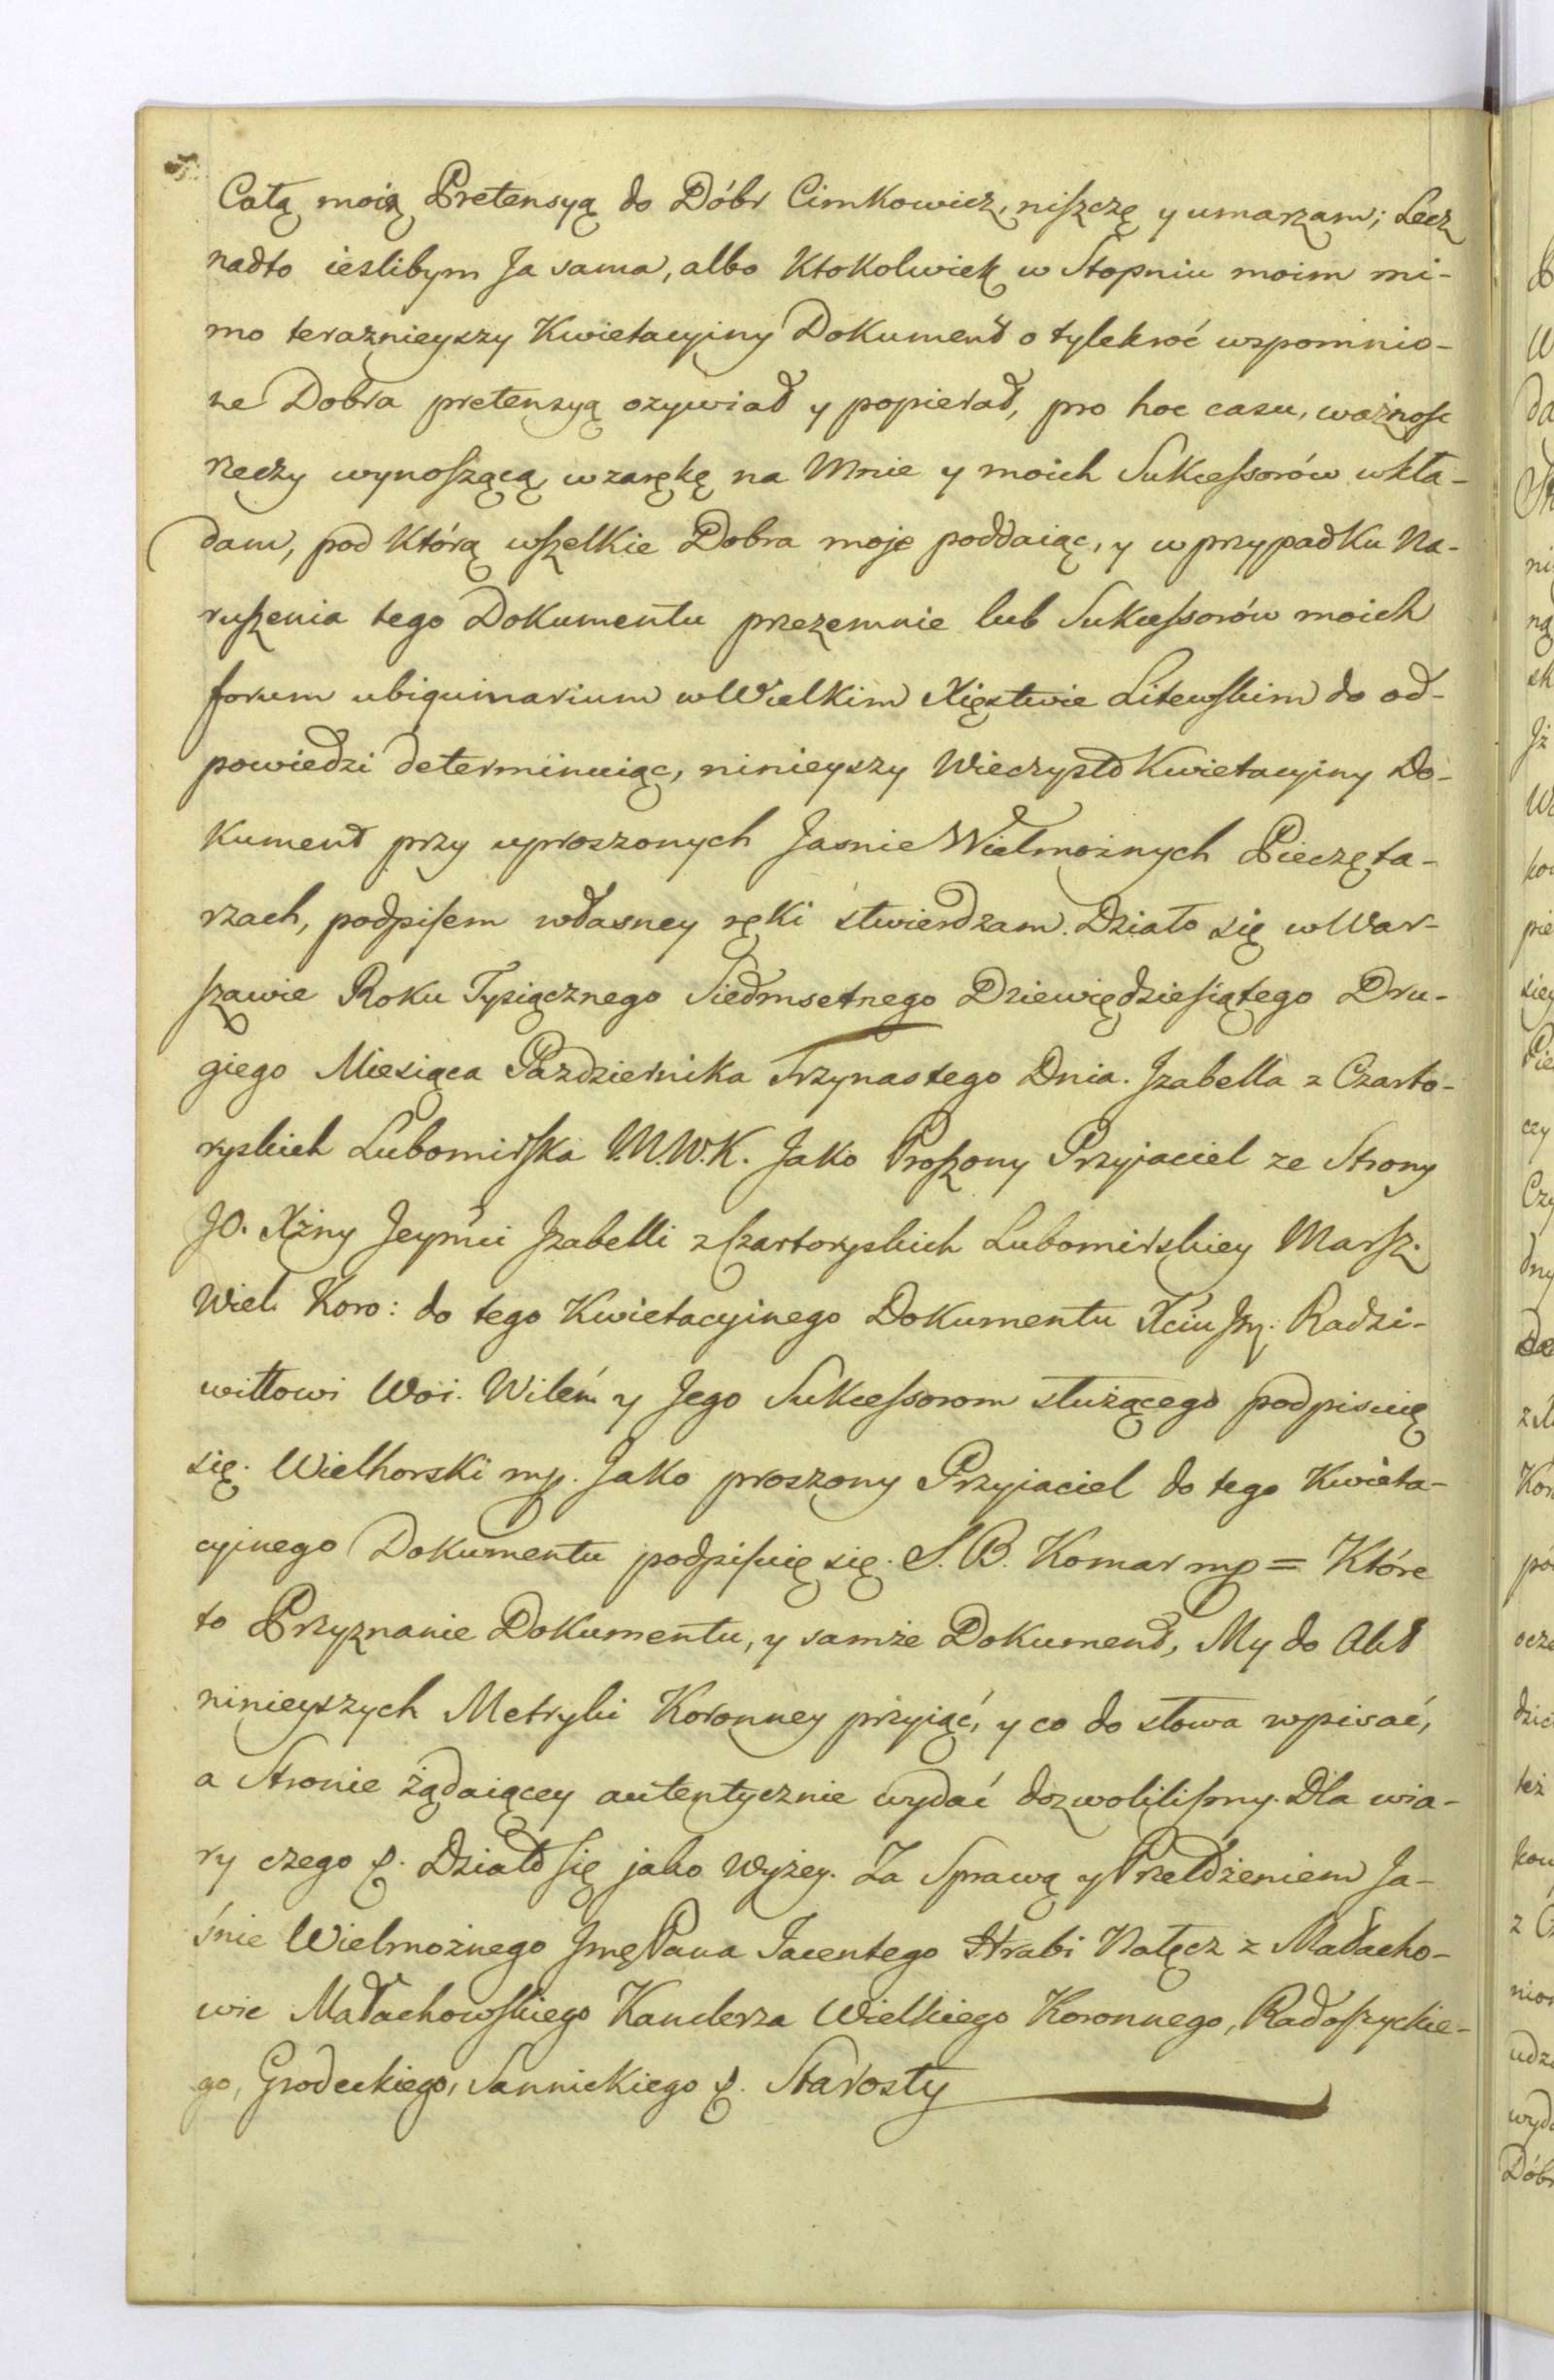 Całą moią Pretensyą do Dóbr Cimkowicz, niszczę y umarzam; Lecz
nadto ieslibym Ja sama, albo Ktokolwiek w Stopniu moim mi-
mo teraznieyszy Kwietacyiny Dokument o tylekroć wspomnio-
ne Dobra pretensyą ozywiał y popierał, pro hoc casu, ważnosc
rzeczy wynoszącą w zarękę na Mnie y moich Sukcessorów wkła-
dam, pod Którą wszelkie Dobra moje poddaiąc, y w przypadku Na-
ruszenia tego Dokumentu przezemnie lub Sukcessorów moich
forum ubiquinarium w Wielkim Xięstwie Litewskim do od-
powiedzi determinuiąc, ninieyszy Wieczysto Kwietacyiny Do-
kument przy uproszonych Jasnie Wielmożnych Pieczęta-
rzach, podpisem własney ręki stwierdzam. Działo się w War-
szawie Roku Tysiącznego Siedmsetnego Dziewiędziesiątego Dru-
giego Miesiąca Pazdziernika Trzynastego Dnia. Jzabella z Czarto-
ryskich Lubomirska M.W.K. Jako Proszony Przyjaciel ze Strony
JO. Xżny Jeymći Jzabelli z Czartoryskich Lubomirskiey Marsz.
Wiel. Koro: do tego Kwietacyinego Dokumentu Xciu Radzi-
wiłłowi Woi. Wileń. y Jego Sukcessorom służącego podpisuię
się. Wielhorski mp. Jako proszony Przyiaciel do tego Kwieta-
cyinego Dokumentu podpisuię się. S. B. Komar mp = Które
to Przyznanie Dokumentu, y samże Dokument, My do Akt
ninieyszych Metryki Koronney przyiąć, y co do słowa wpisać,
a Stronie żądaiącey autentycznie wydać dozwolilismy. Dla wia-
ry czego &. Działo się jako wyżey. Za Sprawą y Przełożeniem Ja-
śnie Wielmożnego Jmę Pana Jacentego Hrabi Nałęcz z Małacho-
wic Małachowskiego Kanclerza Wielkiego Koronnego, Radoszyckie-
go, Grodeckiego, Sannickiego &. Starosty